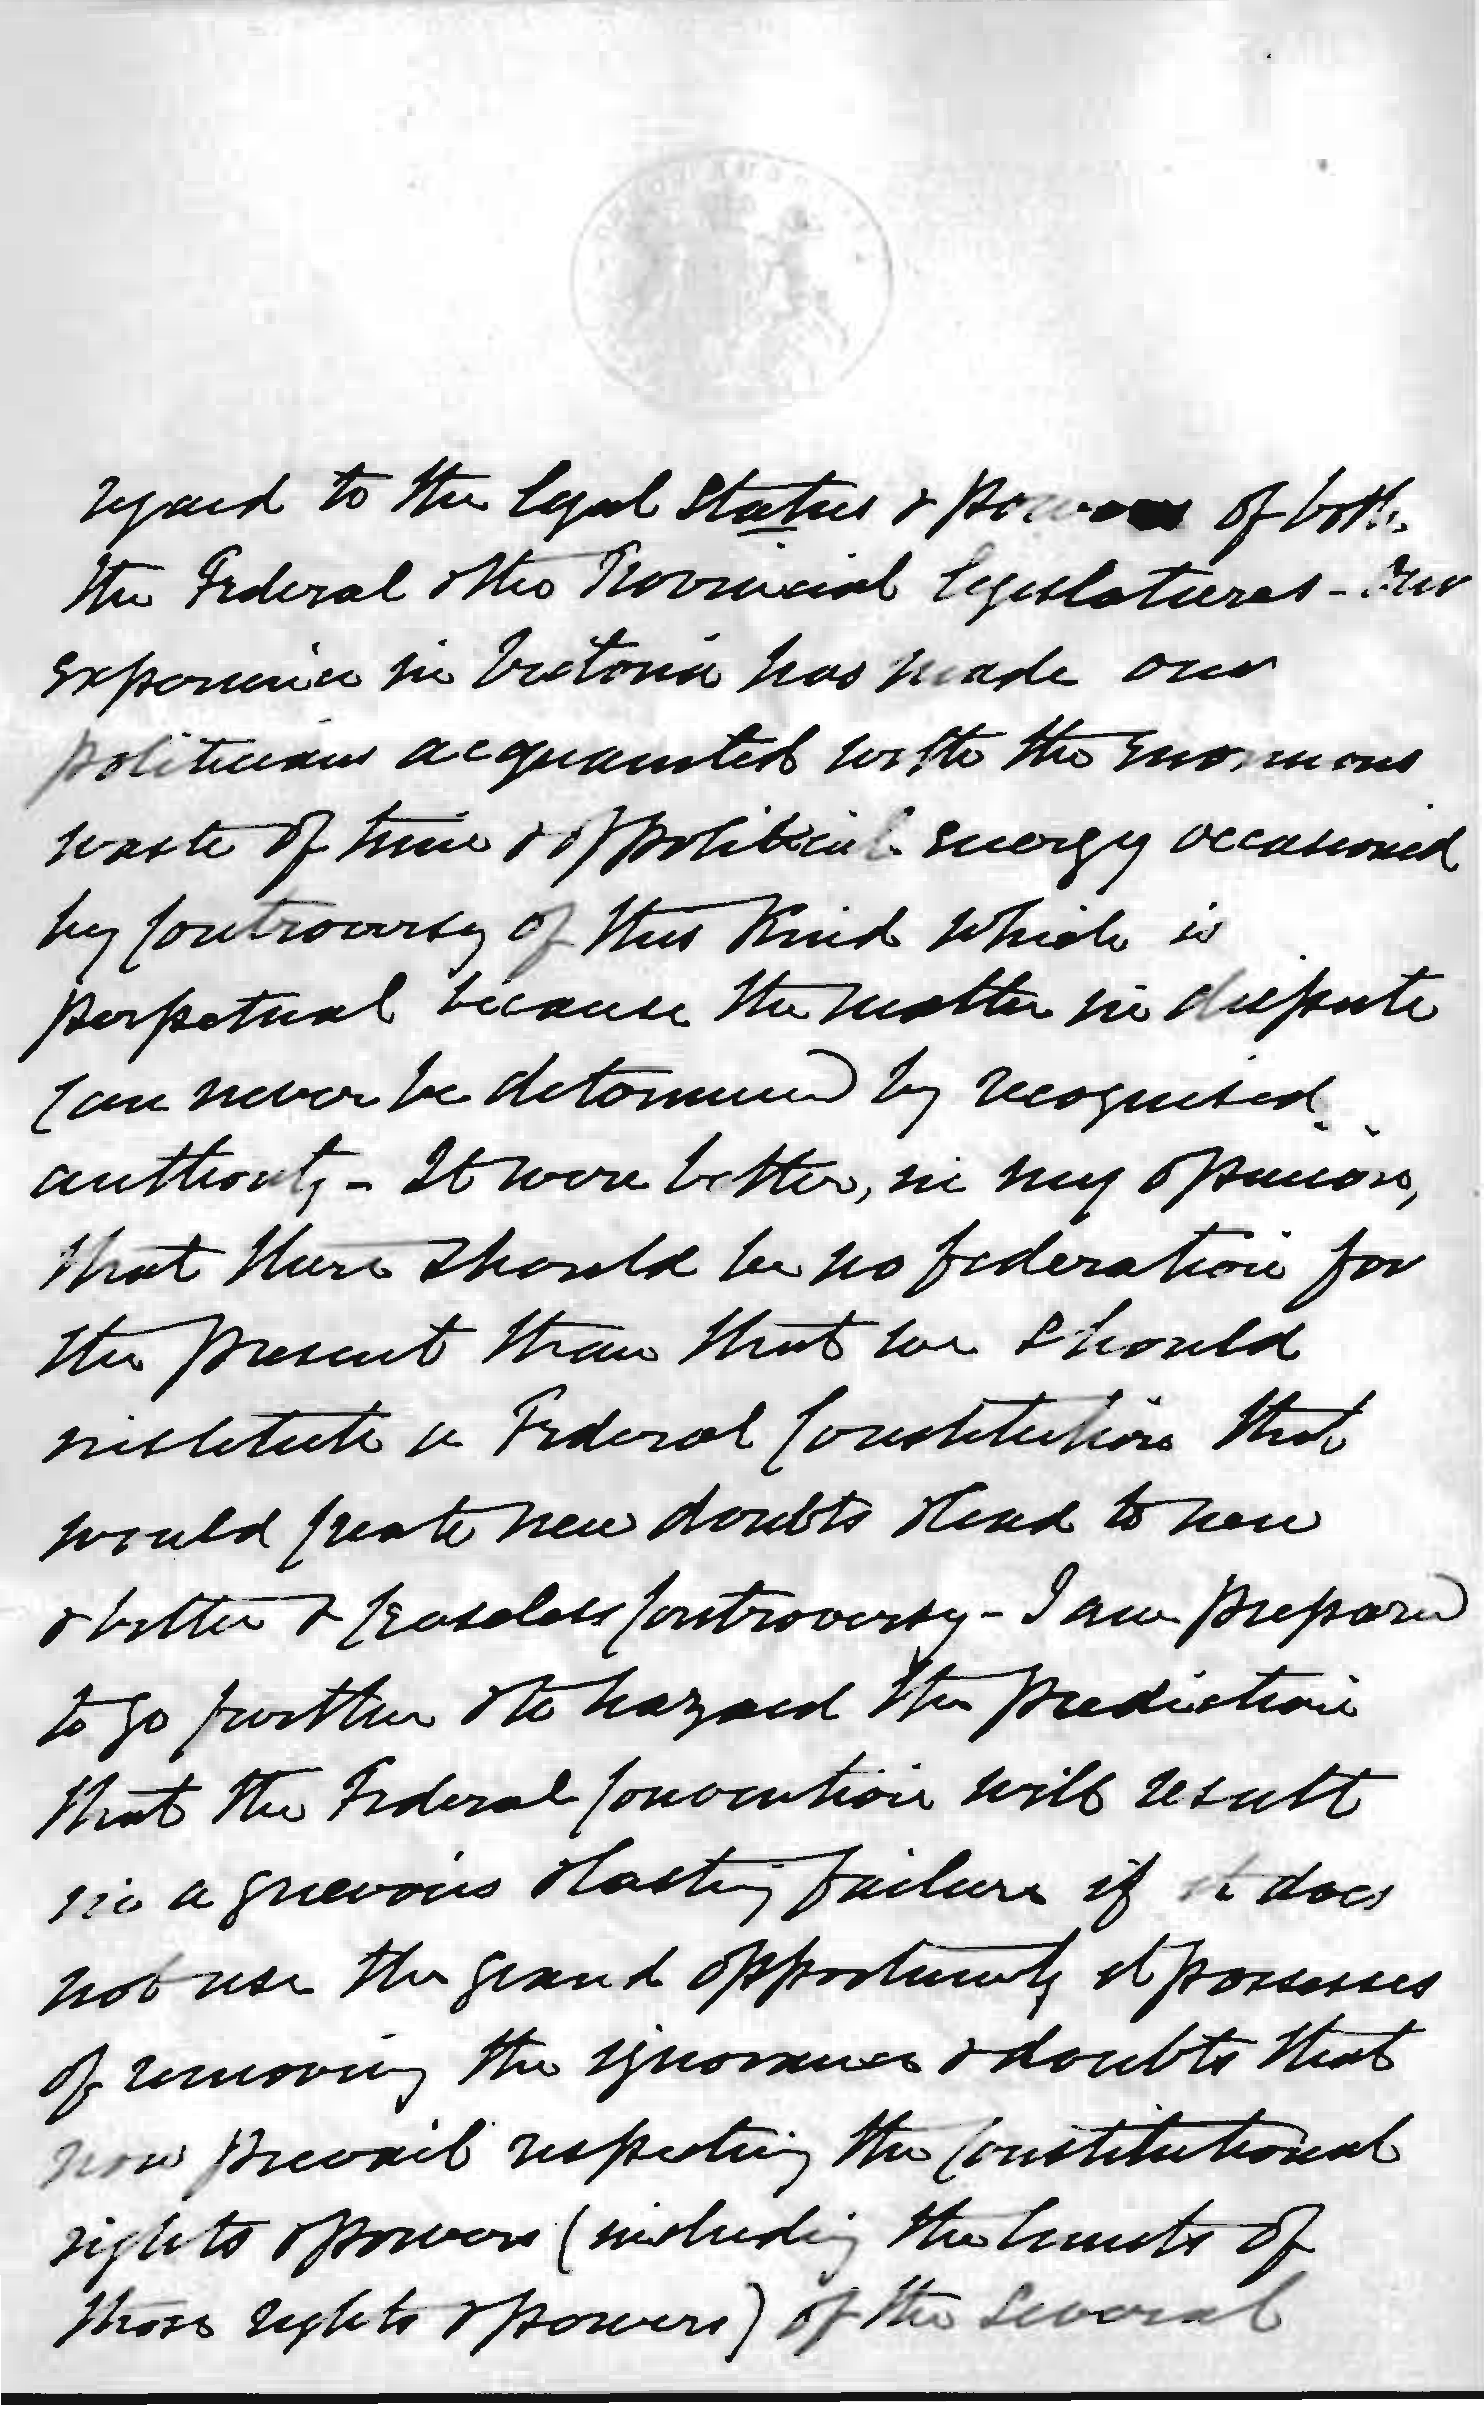 regard to the legal status & powers of both
the Federal & the Provincial legislatures - Our
experience in Victoria has made our
politicians acquainted with the enormous
waste of time & of political energy occasioned
by controversy of this Kind which is
perpetual because the matter in dispute
can never be determined by recognised
authority - It were better, in my opinion,
that there should be no federation for
the present than that we should
institute a Federal Constitution that
would create new doubts & lead to new
& bitter & ceaseless controversy - I am prepared
to go further & to hazard the prediction
that the Federal Convention will result
in a grievous & lasting failure if it does
not use the grand opportunity it possesses
of removing the ignorance & doubts that
now prevail respecting the Constitutional
rights & powers (including the limits of
those rights & powers) of the several